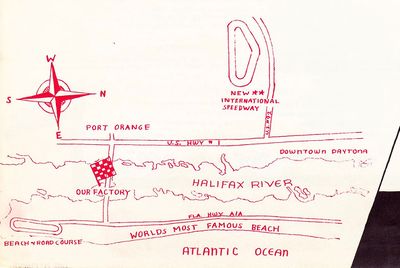 W
S
N
E
NEW **
INTERNATIONAL
SPEEDWAY
PORT ORANGE
U.S. HWY # 1
DOWNTOWN DAYTONA
OUR FACTORY
HALIFAX RIVER
FLA HWY. A1A
WORLDS MOST FAMOUS BEACH
BEACH & ROAD COURSE
ATLANTIC OCEAN